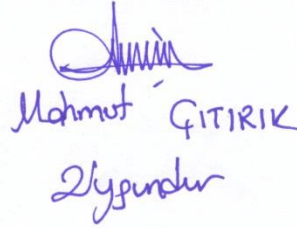 Mahmut ÇITIRIK
Uygundur